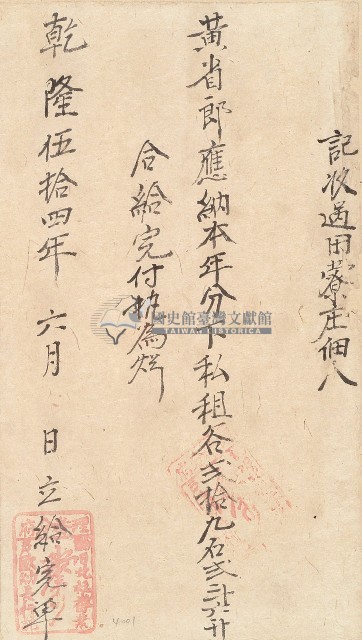 記收過田寮庄佃人
黃省郎應納本年分下私租谷弍拾九石弍斗六升
合給完付執為炤
乾隆伍拾四年 六月 日立給完單
國史館臺灣文獻館
TAIWAN HISTORICA